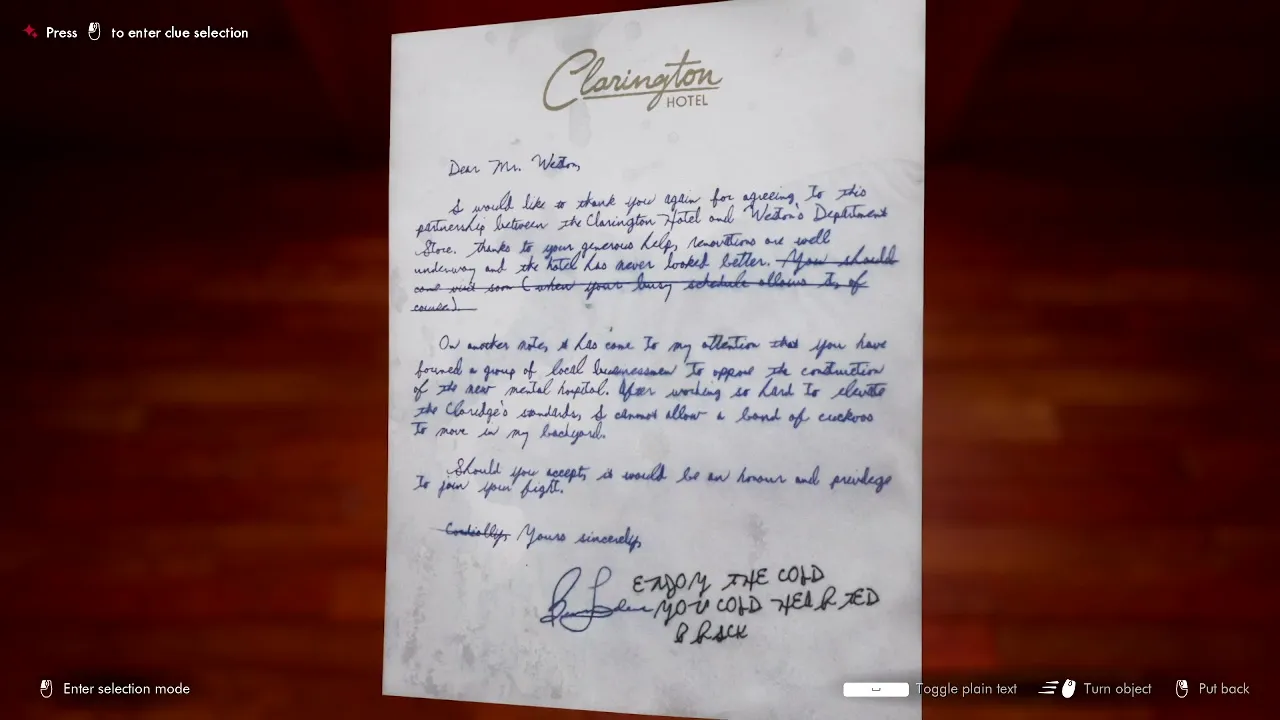 Press to enter clue selection
Clarington
HOTEL
Dear Mr. Weston,
I would like to thank you again for agreeing to this
partnership between the Clarington Hotel and Weston's Department
Store. thanks to your generous help, renovations are well
underway and the hotel has never looked better. You should
come visit soon (when your busy schedule allows it, of
course).
On another note, it has come to my attention that you have
formed a group of local businessmen to oppose the construction
of the new mental hospital. After working so hard to elevate
the Claridge's standards, I cannot allow a band of cuckoos
to move in my backyard.
Should you accept, it would be an honour and privilege
to join your fight.
Cordially, Yours sincerely,
ENJOY THE COLD
YOU COLD HEARTED
Enter selection mode
Toggle plain text
Turn object
Put back